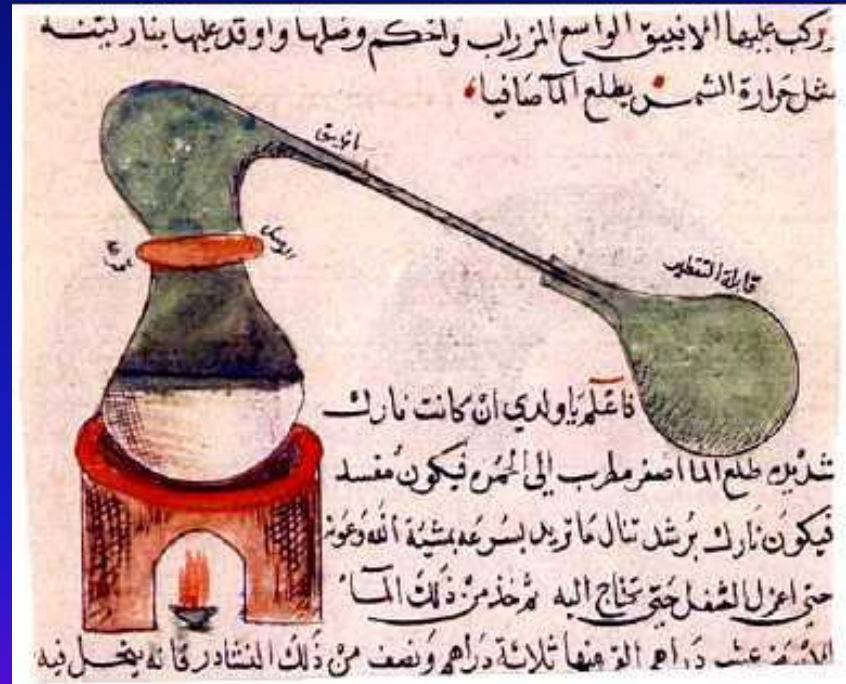 يركب عليها الانبيق الواسع المزراب واحكم وصلها واوقد عليها بنار لينه
مثل حرارة الشمس يطلع المآ صافيا
انبيق
قابلة التقطير
فاعلم يا ولدي ان كانت نارك
شديده طلع الما اصفر مطرب الى الحمره فيكون مفسد
فيكون نارك برشد تنال ما تريد بسرعه بمشيئة الله وعونه
حتى اعزل الثفل حتى تحتاج اليه ثم خذ من ذلك المآ
دراهم الق عنها ثلاثة دراهم ونصف من ذلك النشادر فانه ينحل فيه